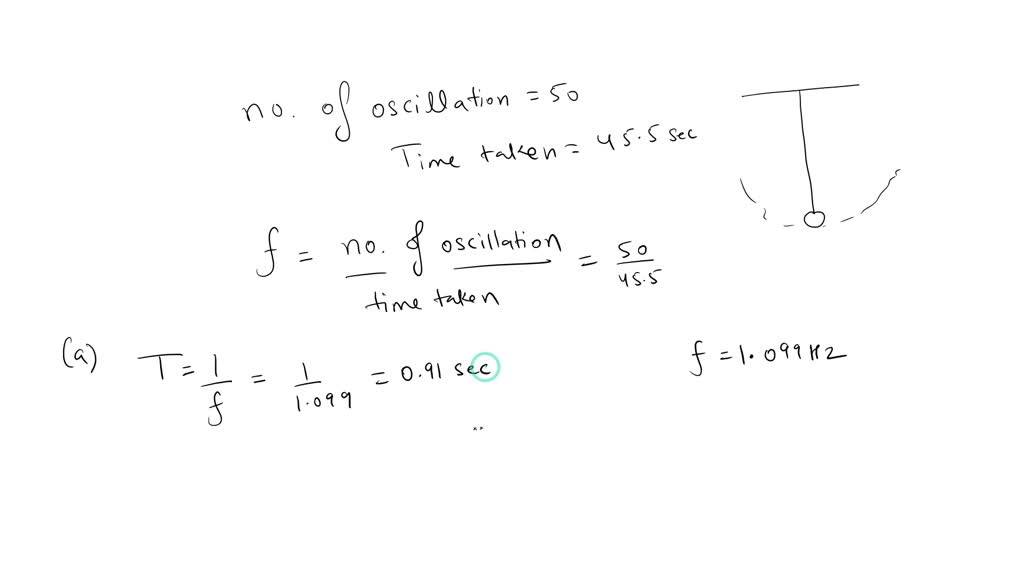 no. of oscillation = 50
Time taken = 45.5 sec
f = no. of oscillation / time taken = 50 / 45.5
(a) T = 1 / f = 1 / 1.099 = 0.91 sec
f = 1.099 Hz